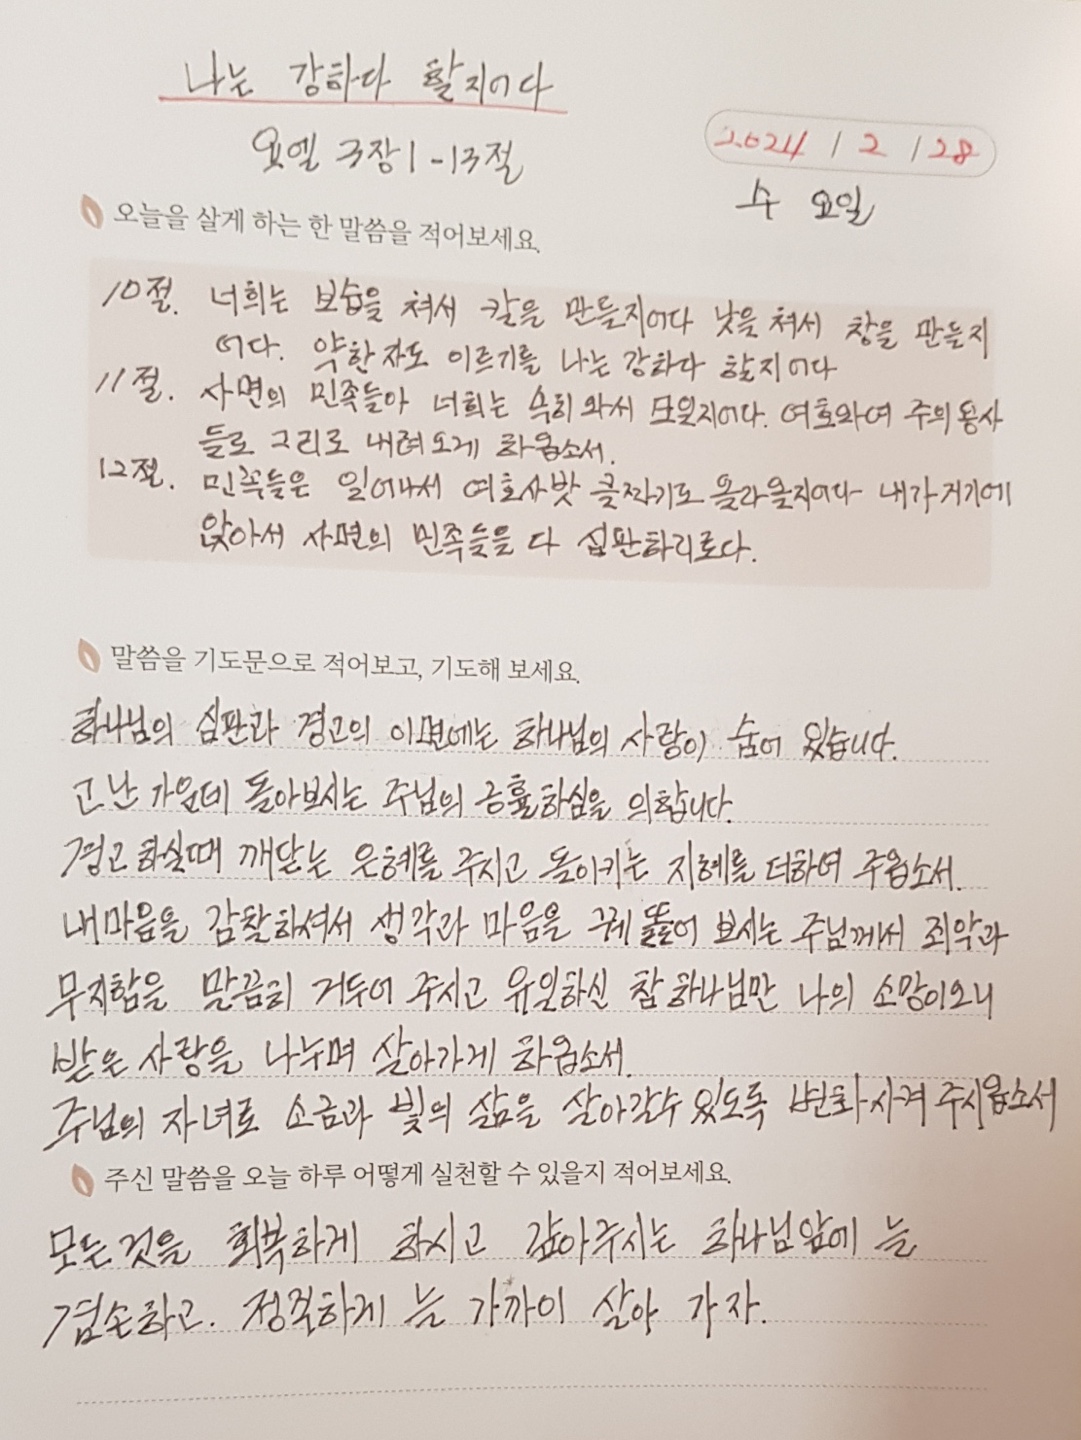 나는 강하다 할지어다
요엘 3장 1-13절
2024 / 2 / 28
수 요일
오늘을 살게 하는 한 말씀을 적어보세요.
10절. 너희는 보습을 쳐서 칼을 만들지어다 낫을 쳐서 창을 만들지
어다. 약한자도 이르기를 나는 강하다 할지어다
11절. 사면의 민족들아 너희는 속히 와서 모일지어다. 여호와여 주의 용사
들로 그리로 내려오게 하옵소서.
12절. 민족들은 일어나서 여호사밧 골짜기로 올라올지어다 내가 거기에
앉아서 사면의 민족들을 다 심판하리로다.
말씀을 기도문으로 적어보고, 기도해 보세요.
하나님의 심판과 경고의 이면에는 하나님의 사랑이 숨어 있습니다.
고난 가운데 돌아보시는 주님의 긍휼하심을 의합니다.
경고하실때 깨닫는 은혜를 주시고 돌이키는 지혜를 더하여 주옵소서.
내마음을 감찰하셔서 생각과 마음을 꿰뚫어 보시는 주님께서 죄악과
무지함을 말끔히 거두어 주시고 유일하신 참 하나님만 나의 소망이오니
받은 사랑을 나누며 살아가게 하옵소서.
주님의 자녀로 소금과 빛의 삶을 살아갈수 있도록 변화시켜 주시옵소서
주신 말씀을 오늘 하루 어떻게 실천할 수 있을지 적어보세요.
모든것을 회복하게 하시고 갚아주시는 하나님앞에 늘
겸손하고. 정직하게 늘 가까이 살아 가자.